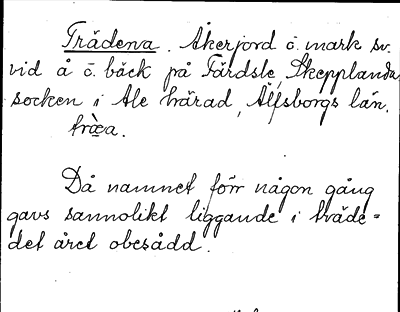 Trädena. Åkerjord o. mark sv.
vid å o. bäck på Färdsle, Skepplanda
socken i Ale härad, Älfsborgs län.
träa.
Då namnet förr någon gång
gavs sannolikt liggande i träde =
det året obesådd.